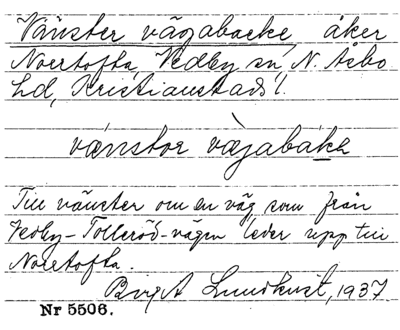 Vänster vägabacke åker
Norrtofta, Vedby sn, N. Åsbo
hd, Kristianstads l.
vänstər vægabakə
Till vänster om en väg som från
Vedby–Tolleröd-vägen leder upp till
Norrtofta.
Birgit Lundkvist, 1937
Nr 5506.